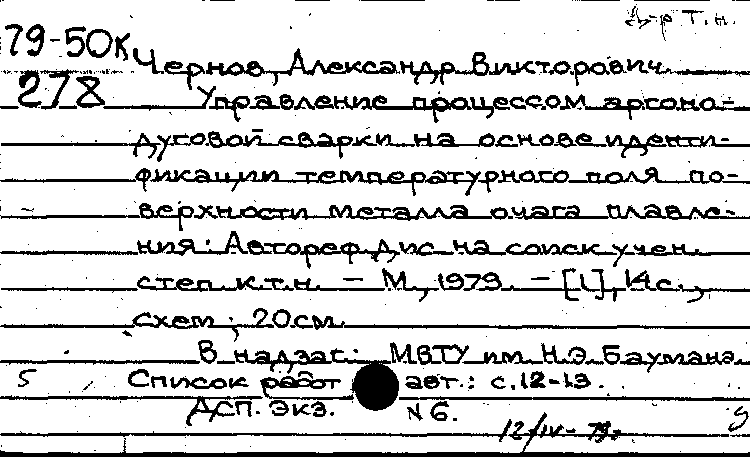 д-р т.н.
79-50к Чернов, Александр Викторович
278 Управление процессом аргоно-
дуговой сварки на основе иденти-
фикации температурного поля по-
верхности металла очага плавле-
ния: Автореф. дис на соиск учен.
степ к.т.н. – М., 1979. – [1], 14с.,
схем; 20см.
В надзаг.: МВТУ им. Н.Э. Баумана.
5 Список работ авт.: с. 12-13.
ДСП. Экз. N 6.
12/IV-79г